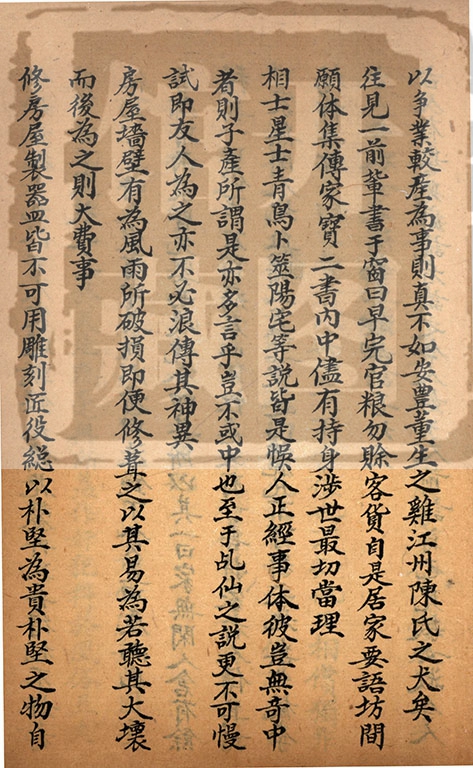 以争業較產為事則真不如安豊董生之雞江州陳氏之犬矣
往見一前輩書于窗曰早完官粮勿賖客貨自是居家要語坊間
願体集傳家寶二書內中儘有持身涉世最切當理
相士星士青烏卜筮陽宅等説皆是悞人正經事体彼豈無奇中
者則子產所謂是亦多言乎豈不或中也至于乩仙之説更不可慢
試即友人為之亦不必浪傳其神異
房屋墻壁有為風雨所破損即便修葺之以其易為若聽其大壞
而後為之則大費事
修房屋製器皿皆不可用雕刻匠役総以朴堅為貴朴堅之物自